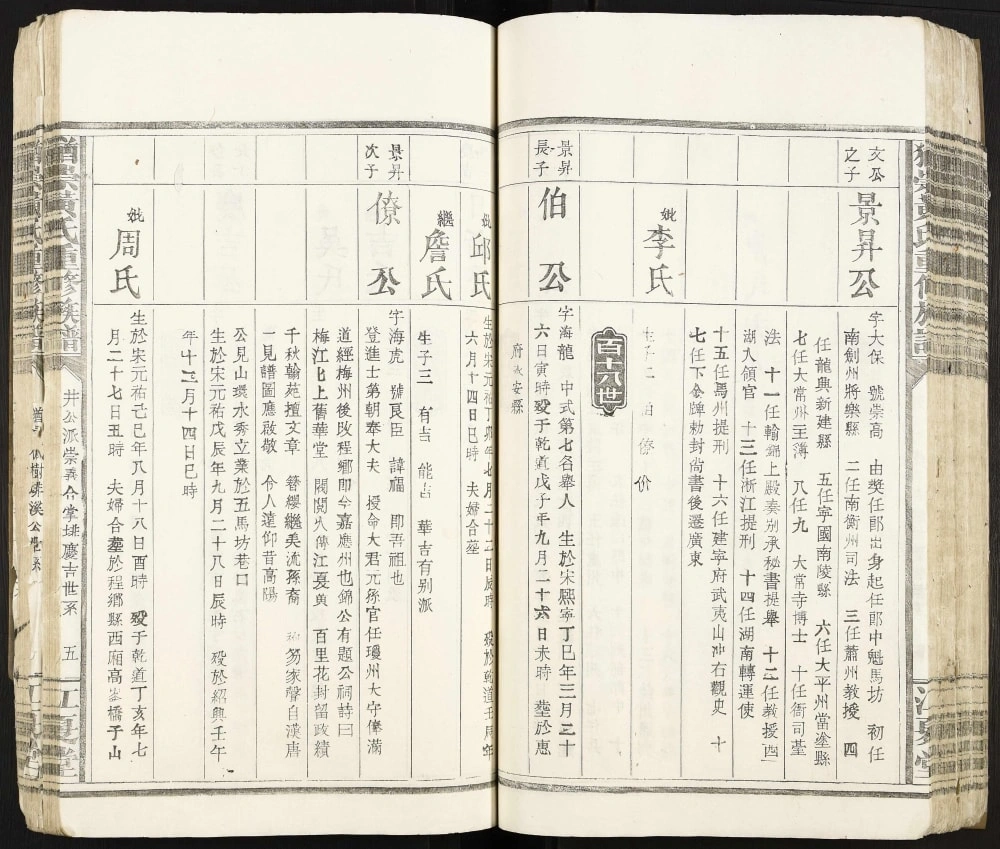 文瓜
之子
景昇公
字大保 號崇高 由奬任郎出身起任郎中魁馬坊 初任
南劍州將樂縣 二任南衡州司法 三任蕭州教授 四
任龍興新建縣 五任宇國南陵縣 六任大平州當塗縣
七任大常州主簿 八任九 大常寺博士 十任衙司堇
法 十一任輸錦上殿奏別承秘書提舉 十二任教授四
湖入領官 十三任淅江提刑 十四任湖南轉運使
十五任馬州提刑 十六任建寧府武夷山冲右觀史 十
七任下 勅封尚書後遷廣東
妣李氏
生子二 伯 僚 价
百十八世
景昇
長子
伯公
字海龍 中式第七各舉人 生於宋熙寧丁巳年三月三十
六日寅時 歿于乾道戊子年九月二十六日未時 塟於惠
府 安縣
妣邱氏
生於宋元祐丁卯年七月二十二日戌時 歿於乾道壬 年
六月十四日巳時 夫婦合塟
繼詹氏
生子三 有吉 能吉 華吉有别派
景昇
次子
僚公
字海虎 號艮臣 諱福 即吾祖也
登進士第朝奉大夫 授命大君元孫官任瓊州大守俸滿
道經梅州後改程鄉即今嘉應州也錦公有題公祠詩曰
梅江七上舊華堂 閥閱久傳江夏黄 百里花封留政績
千秋翰苑擅文章 簪纓繼美流孫裔 笏家聲自漢唐
一見譜圖應啟敬 令人遠仰昔高陽
公見山環水秀立業於五馬坊巷口
生於宋元祐戊辰年九月二十八日辰時 歿於紹興壬午
年十二月十四日巳時
妣周氏
生於宋元祐己巳年八月十八日酉時 歿于乾道丁亥年七
月二十七日五時 夫婦合塟於程鄉縣西廂高峯橋于山
猶崇黄氏重修族譜
井公派崇義令掌排慶吉世系
五
江夏堂